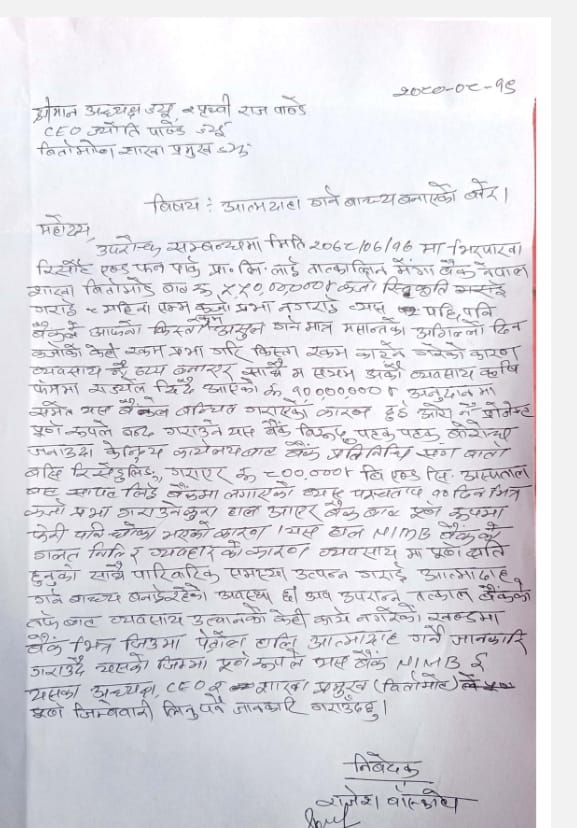 २०८०-०८-१९
श्रीमान अध्यक्ष ज्यू, पृथ्वी राज पाण्डे
CEO ज्योति पाण्डे ज्यू
बिर्तामोड शाखा प्रमुख ज्यू
बिषय : आत्मदाहा गर्न बाध्य बनाएको बारे।
महोदय,
उपरोक्त सम्बन्धमा मिति २०७८/०६/१७ मा
रिसोर्ट एण्ड फन पार्क प्रा. लि. लाई तात्कालिन मेगा बैंक नेपाल
शाखा बिर्तामोड बाट रू कर्जा स्विकृति गरेई
गराई ८ महिना सम्म कर्जा प्रभा नगराई त्यस पछि पनि
बैंकले आफ्नो किस्ता रकम असुल गर्न मात्र मसान्तको अगिल्लो दिन
कर्जाको केही रकम प्रभा गरि किस्ता रकम काट्ने गरेको कारण
व्यवसाय नै ठप्प बनाएर साथै म संग्लन अर्को व्यवसाय कृषि
फर्ममा आएको रू १००००००० अनुदानमा
समेत यस बैंकले बन्चित गराएको कारण हुदै
पूर्ण रूपले बन्द गराउने यस बैंक बिरूद्ध पटक पटक
जनाउदा केन्द्रिय कार्यलय बाट बैंक प्रतिनिधि संग वार्ता
बसि रिसेडुलिङ गराएर रू ८००,०००। बि एण्ड सि. अस्पताल
बाट सापट लिई बैंकमा लगाएको त्यस पश्चात १० दिन भित्र
कर्जा प्रभा गराउने कुरा हाल आएर बैंक बाट पूर्ण रूपमा
फेरी पनि धोका भएको कारण। यस हाल NIMB बैंकको
गलत निति र व्यवहार को कारण व्यवसाय मा पूर्ण क्षति
हुनुको साथै पारिवारिक समस्या उत्पन्न गराई आत्मादाह
गर्न बाध्य बनाईरहेको अवस्था छ। अब उपरान्त तत्काल बैंकको
तर्फ बाट व्यवसाय उत्थानको केही कार्य नगरेको खण्डमा
बैंक भित्र जिउमा पेट्रोल हालि आत्मादाह गर्ने जानकारि
गराउँदै यसको जिम्मा पूर्ण रूपले यस बैंक NIMB र
यसका अध्यक्ष, CEO र शाखा प्रमुख (बिर्तामोड) ले
पूर्ण जिम्मेवारी लिनुपर्ने जानकारि गराउँदछु।
निबेदक
राजेश बाँस्कोटा